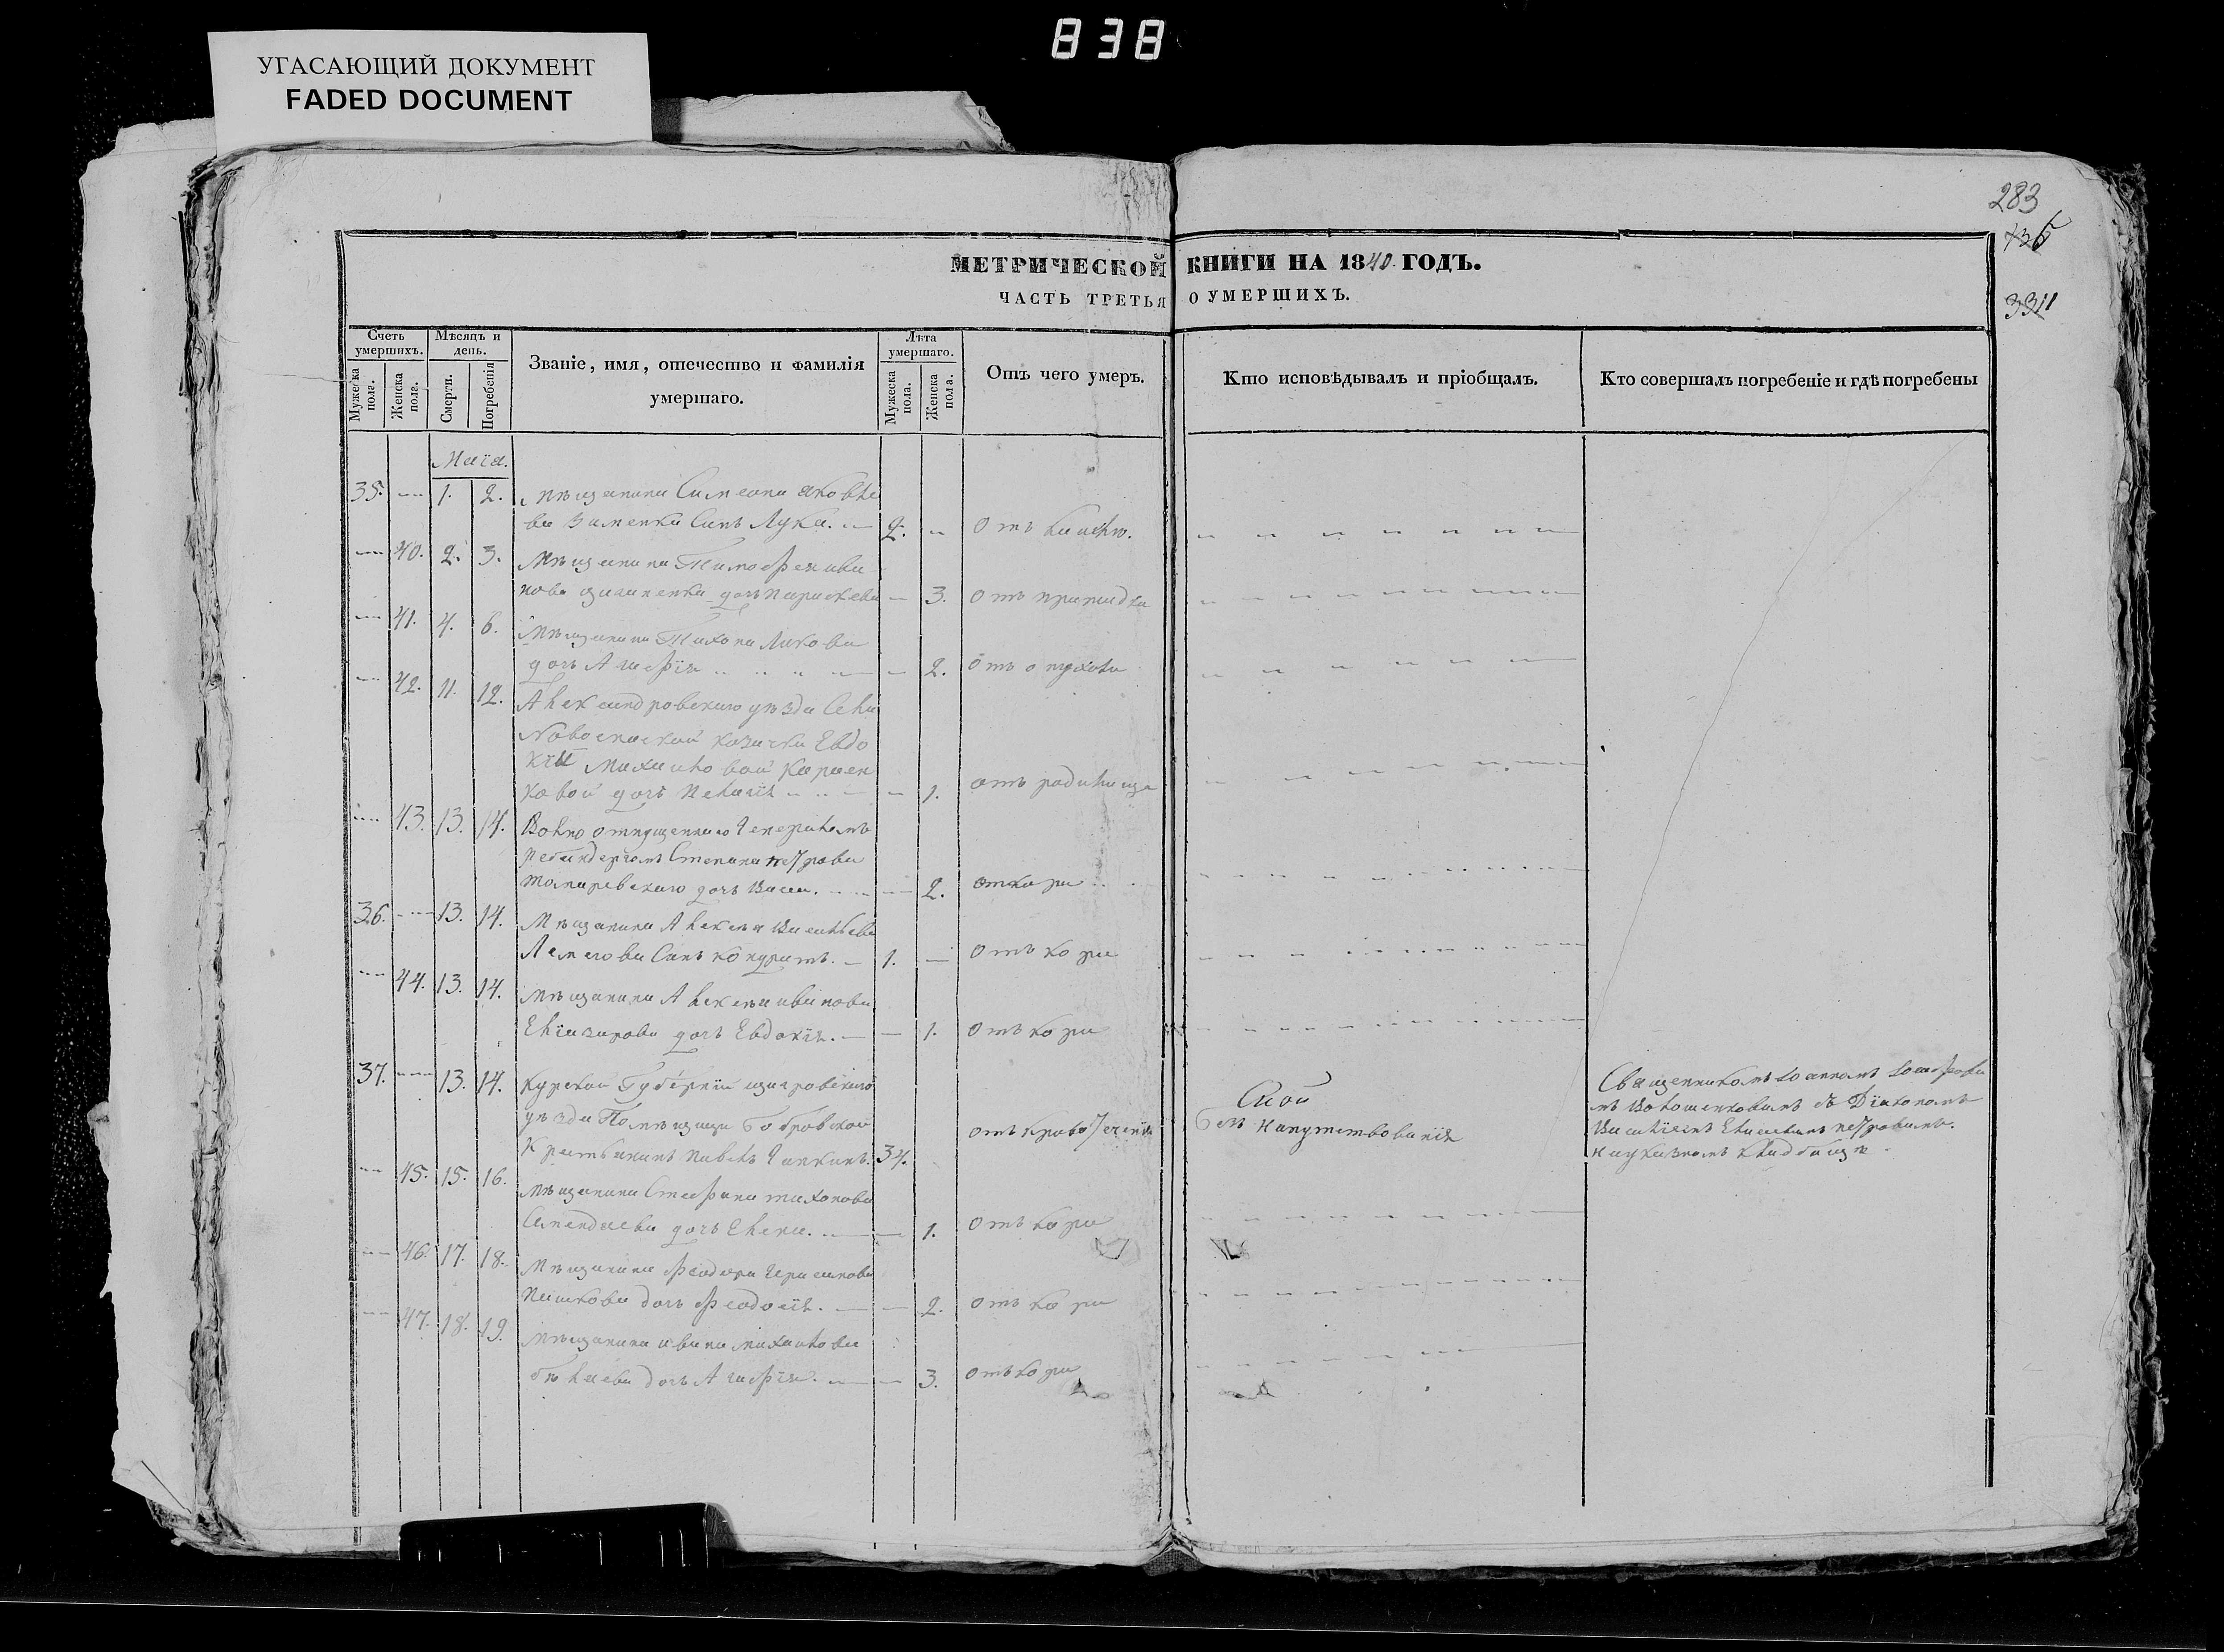 838
УГАСАЮЩИЙ ДОКУМЕНТ
FADED DOCUMENT
283
МЕТРИЧЕСКОЙ КНИГИ НА 1840 ГОДЪ.
ЧАСТЬ ТРЕТЬЯ О УМЕРШИХЪ.
Счетъ умершихъ.
Мужеска полг.
Женска полг.
Мѣсяцъ и день.
Смерти.
Погребенія
Званіе, имя, отечество и фамилія умершаго.
Лѣта умершаго.
Мужеска пола.
Женска пола.
Отъ чего умеръ.
Кто исповѣдывалъ и пріобщалъ.
Кто совершалъ погребеніе и гдѣ погребены
Маія.
35. 1. 2. мѣщанина Симеона Яковле
ва сынъ Лука. 2. отъ кашлю.
40. 2. 3. Мѣщанина Тимофея ива
нова дочь Параскева 3. отъ припадка
41. 4. 6. Мѣщанина Тихона
дочь Агафія 2. отъ опухоли
42. 11. 12. Александровскаго уѣзда Села
Новоспаской козачки Евдо
кіи Михайловой
ковой дочь Пелагія 1. отъ родимца
43. 13. 14. Вольно отпущеннаго Генераломъ
Степана петрова
дочь Васса. 2. откори
36. 13. 14. Мѣщанина Алексѣя Васильева
сынъ 1. отъ кори
44. 13. 14. мѣщанина Алексѣя иванова
Еліазарова дочь Евдокія. 1. отъ кори
37. 13. 14. Курской Губерніи щигровскаго
уѣзда Помѣщицы бобровской
Крестьянинъ Павелъ 34. отъ кровотеченія
безъ напутствованія
Священникомъ Іоанномъ
съ Діакономъ
петровымъ.
кладбищѣ.
45. 15. 16. мѣщанина Стефана тихонова
дочь Елена. 1. отъ кори
46. 17. 18. Мѣщанина Феодора Герасимова
Пашкова дочь Феодосія. 2. отъ кори
47. 18. 19. мѣщанина ивана михайлова
бѣляева дочь Агафія. 3. отъ кори